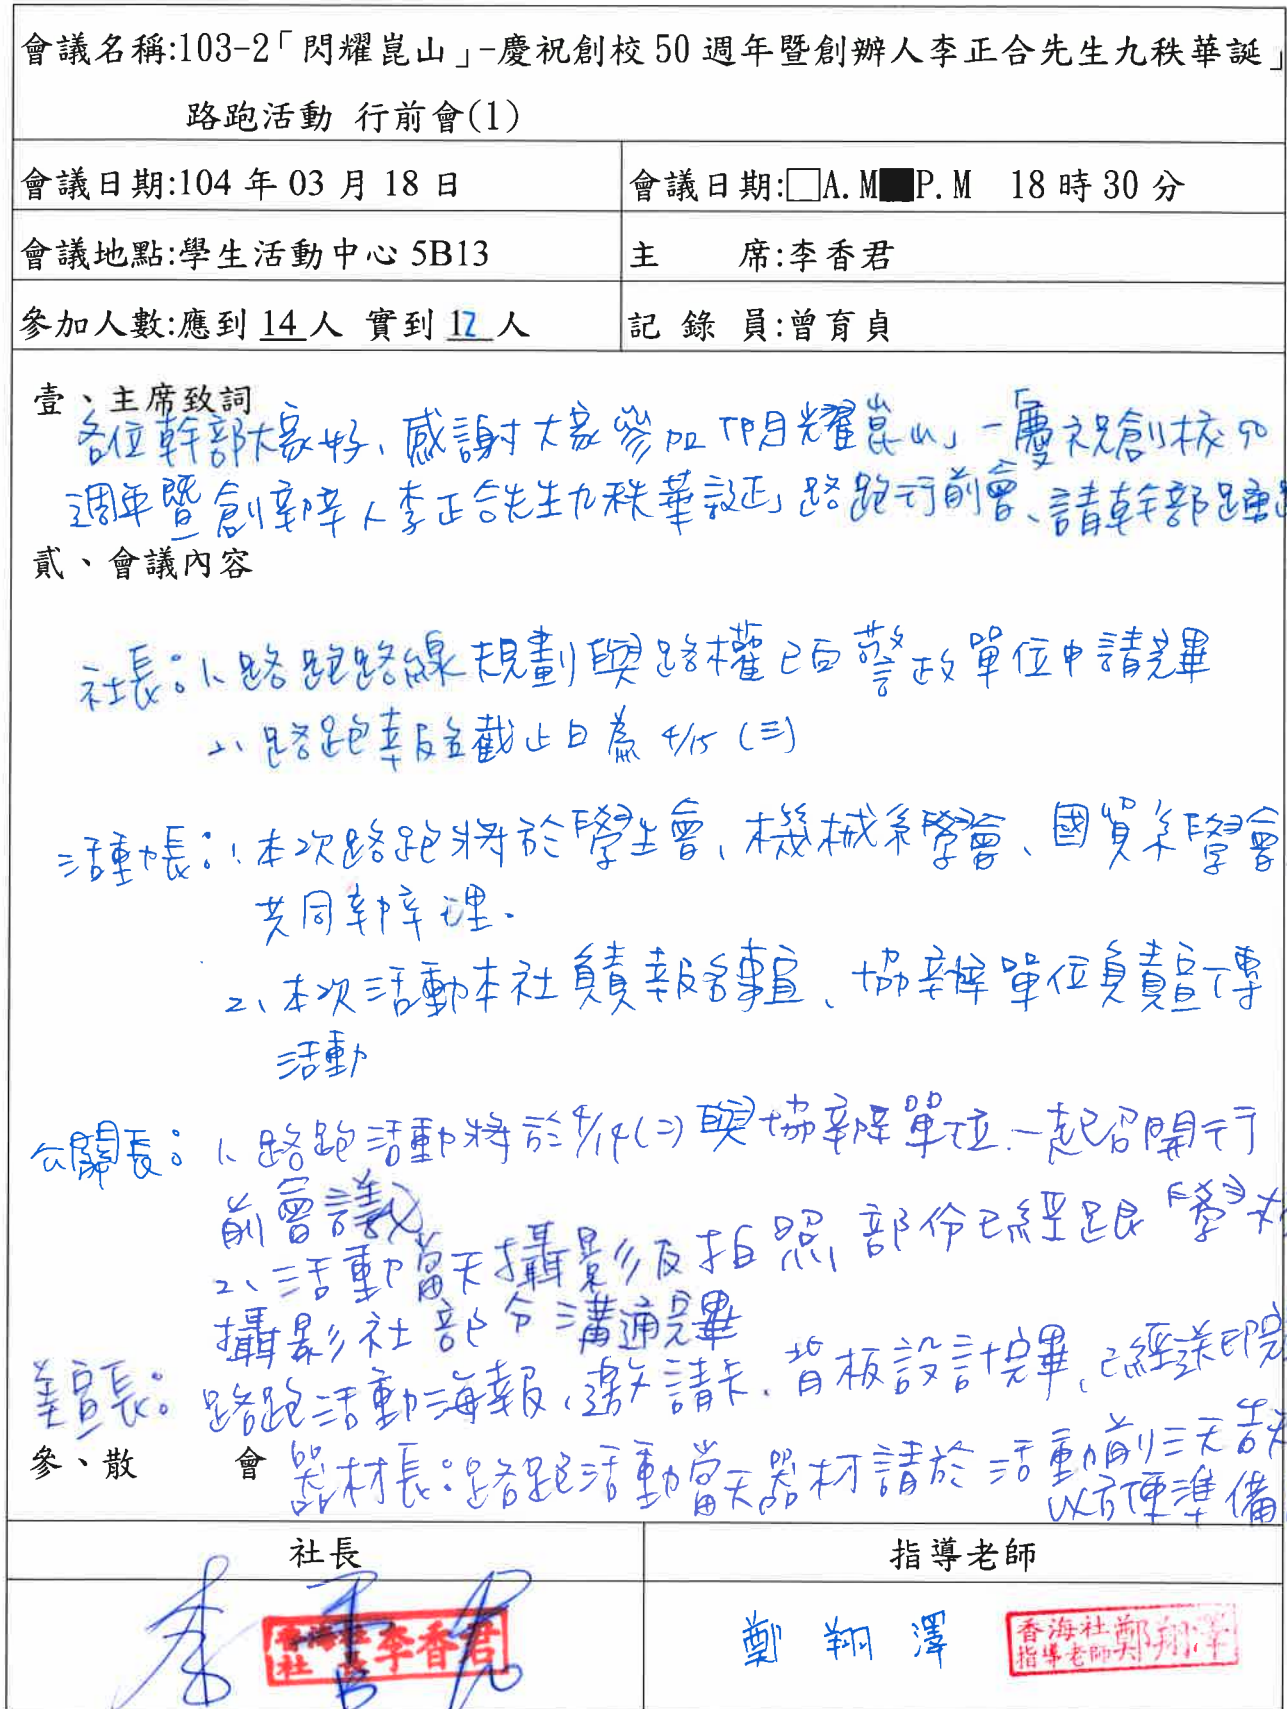 會議名稱:103-2「閃耀崑山」-慶祝創校 50 週年暨創辦人李正合先生九秩華誕」
路跑活動 行前會(1)
會議日期:104 年 03 月 18 日
會議日期:□A.M■P.M 18 時 30 分
會議地點:學生活動中心 5B13
主 席:李香君
參加人數:應到 14 人 實到 12 人
記 錄 員:曾育貞
壹、主席致詞
各位幹部大家好、感謝大家參加「閃耀崑山」-「慶祝創校50
週年暨創辦人李正合先生九秩華誕」路跑行前會、請幹部踴
貳、會議內容
社長:1、路跑路線規劃與路權已向警政單位申請完畢
2、路跑報名截止日為 4/15 (三)
活動長:1、本次路跑將於學生會、機械系學會、國貿系學會
共同辦理.
2、本次活動本社負責報名事宜、協辦單位負責宣傳
活動
公關長:1、路跑活動將於4/14(二)與協辦單位一起召開行
前會議
2、活動當天攝影及拍照部份已經跟「學
攝影社部分溝通完畢
美宣長:路跑活動海報、邀請卡、背板設計完畢、已經送印完
參、散 會
器材長:路跑活動當天器材請於活動前三天告
以方便準備
社長
指導老師
李香君
社 長 李香君
鄭翔澤
香海社
指導老師 鄭翔澤